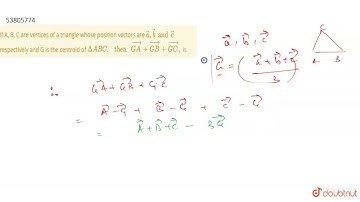 53805774
If A, B, C are vertices of a triangle whose position vectors are a⃗, b⃗ and c⃗
respectively and G is the centroid of ΔABC, then G⃗A + G⃗B + G⃗C, is
a⃗, b⃗, c⃗
G⃗ = (a⃗ + b⃗ + c⃗ / 3)
A B
∴ G⃗A + G⃗B + G⃗C
= A⃗ - G⃗ + B⃗ - G⃗ + C⃗ - G⃗
= A⃗ + B⃗ + C⃗ - 3G⃗
doubtnut